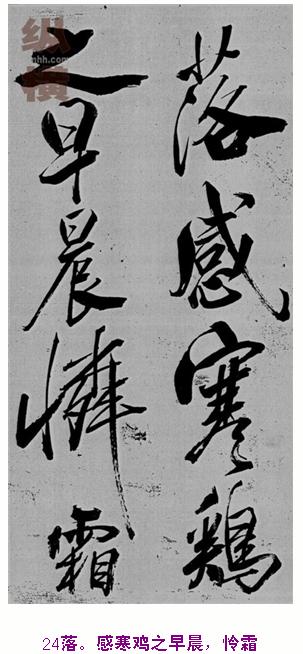 落感寒鷄
之早晨憐霜
纵横
24落。感寒鸡之早晨，怜霜